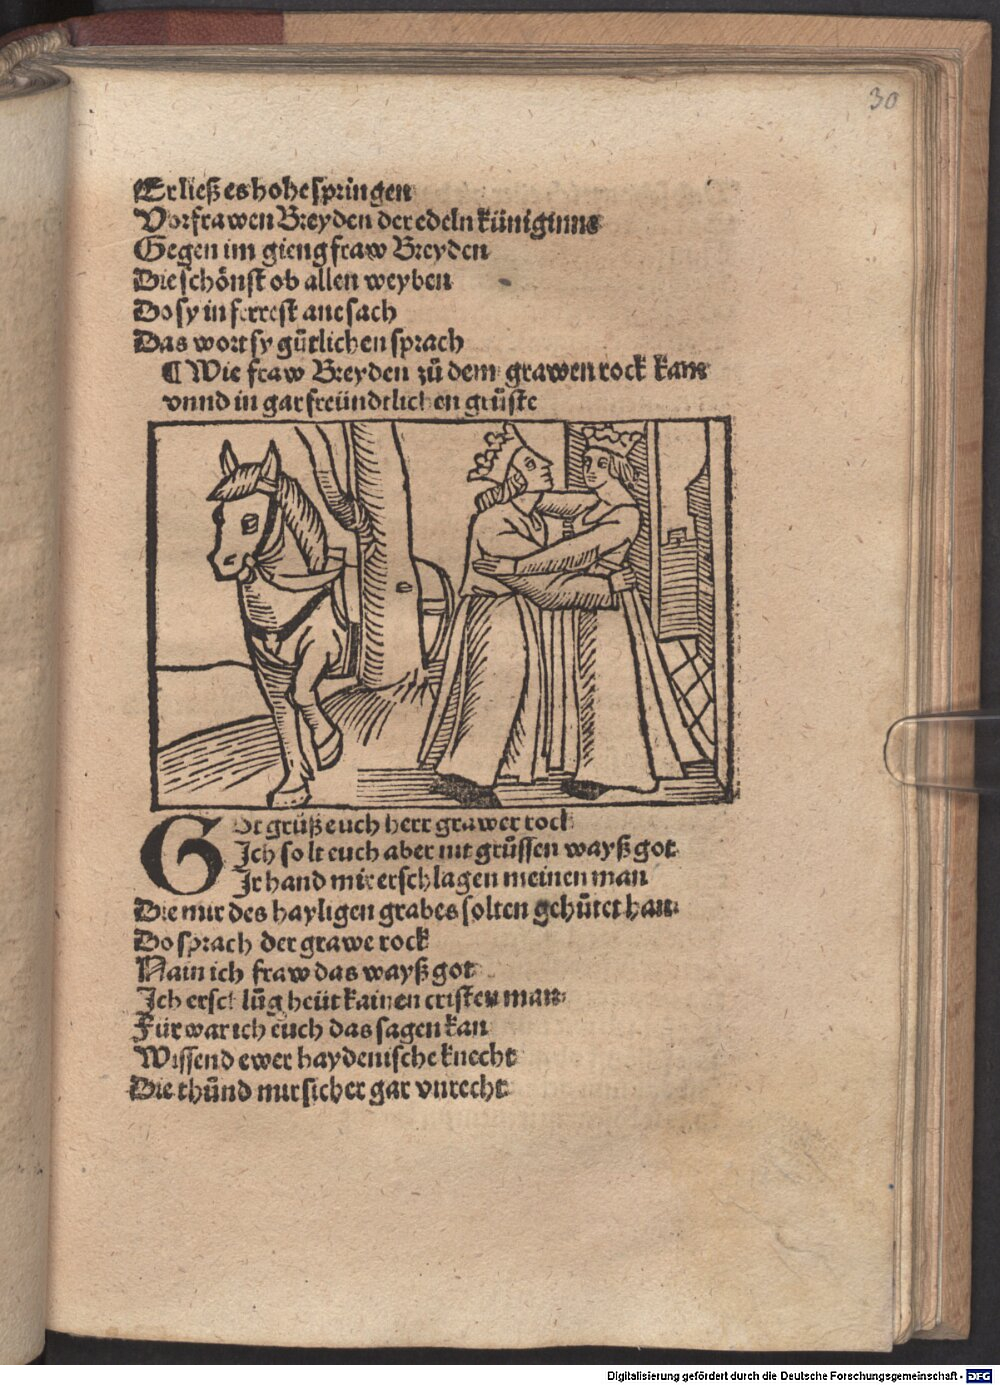 30
Er ließ es hohe springen
Vor frawen Breyden der edeln küniginne
Gegen im gieng fraw Breyden
Die schönst ob allen weyben
Do sy in ferrest ane sach
Das wort sy gůtlichen sprach
¶ Wie fraw Breyden zů dem grawen rock kam
vnnd in gar freündtlichen grüste
Got grüß euch herr grawer rock
Ich solt euch aber nit grüssen wayß got
Ir hand mir erschlagen meinen man
Die mir des hayligen grabes solten gehütet han
Do sprach der grawe rock
Nain ich fraw das wayß got
Ich erschlůg heüt kainen cristen man
Für war ich euch das sagen kan
Wissend ewer haydenische knecht
Die thůnd mir sicher gar vnrecht
Digitalisierung gefördert durch die Deutsche Forschungsgemeinschaft - DFG